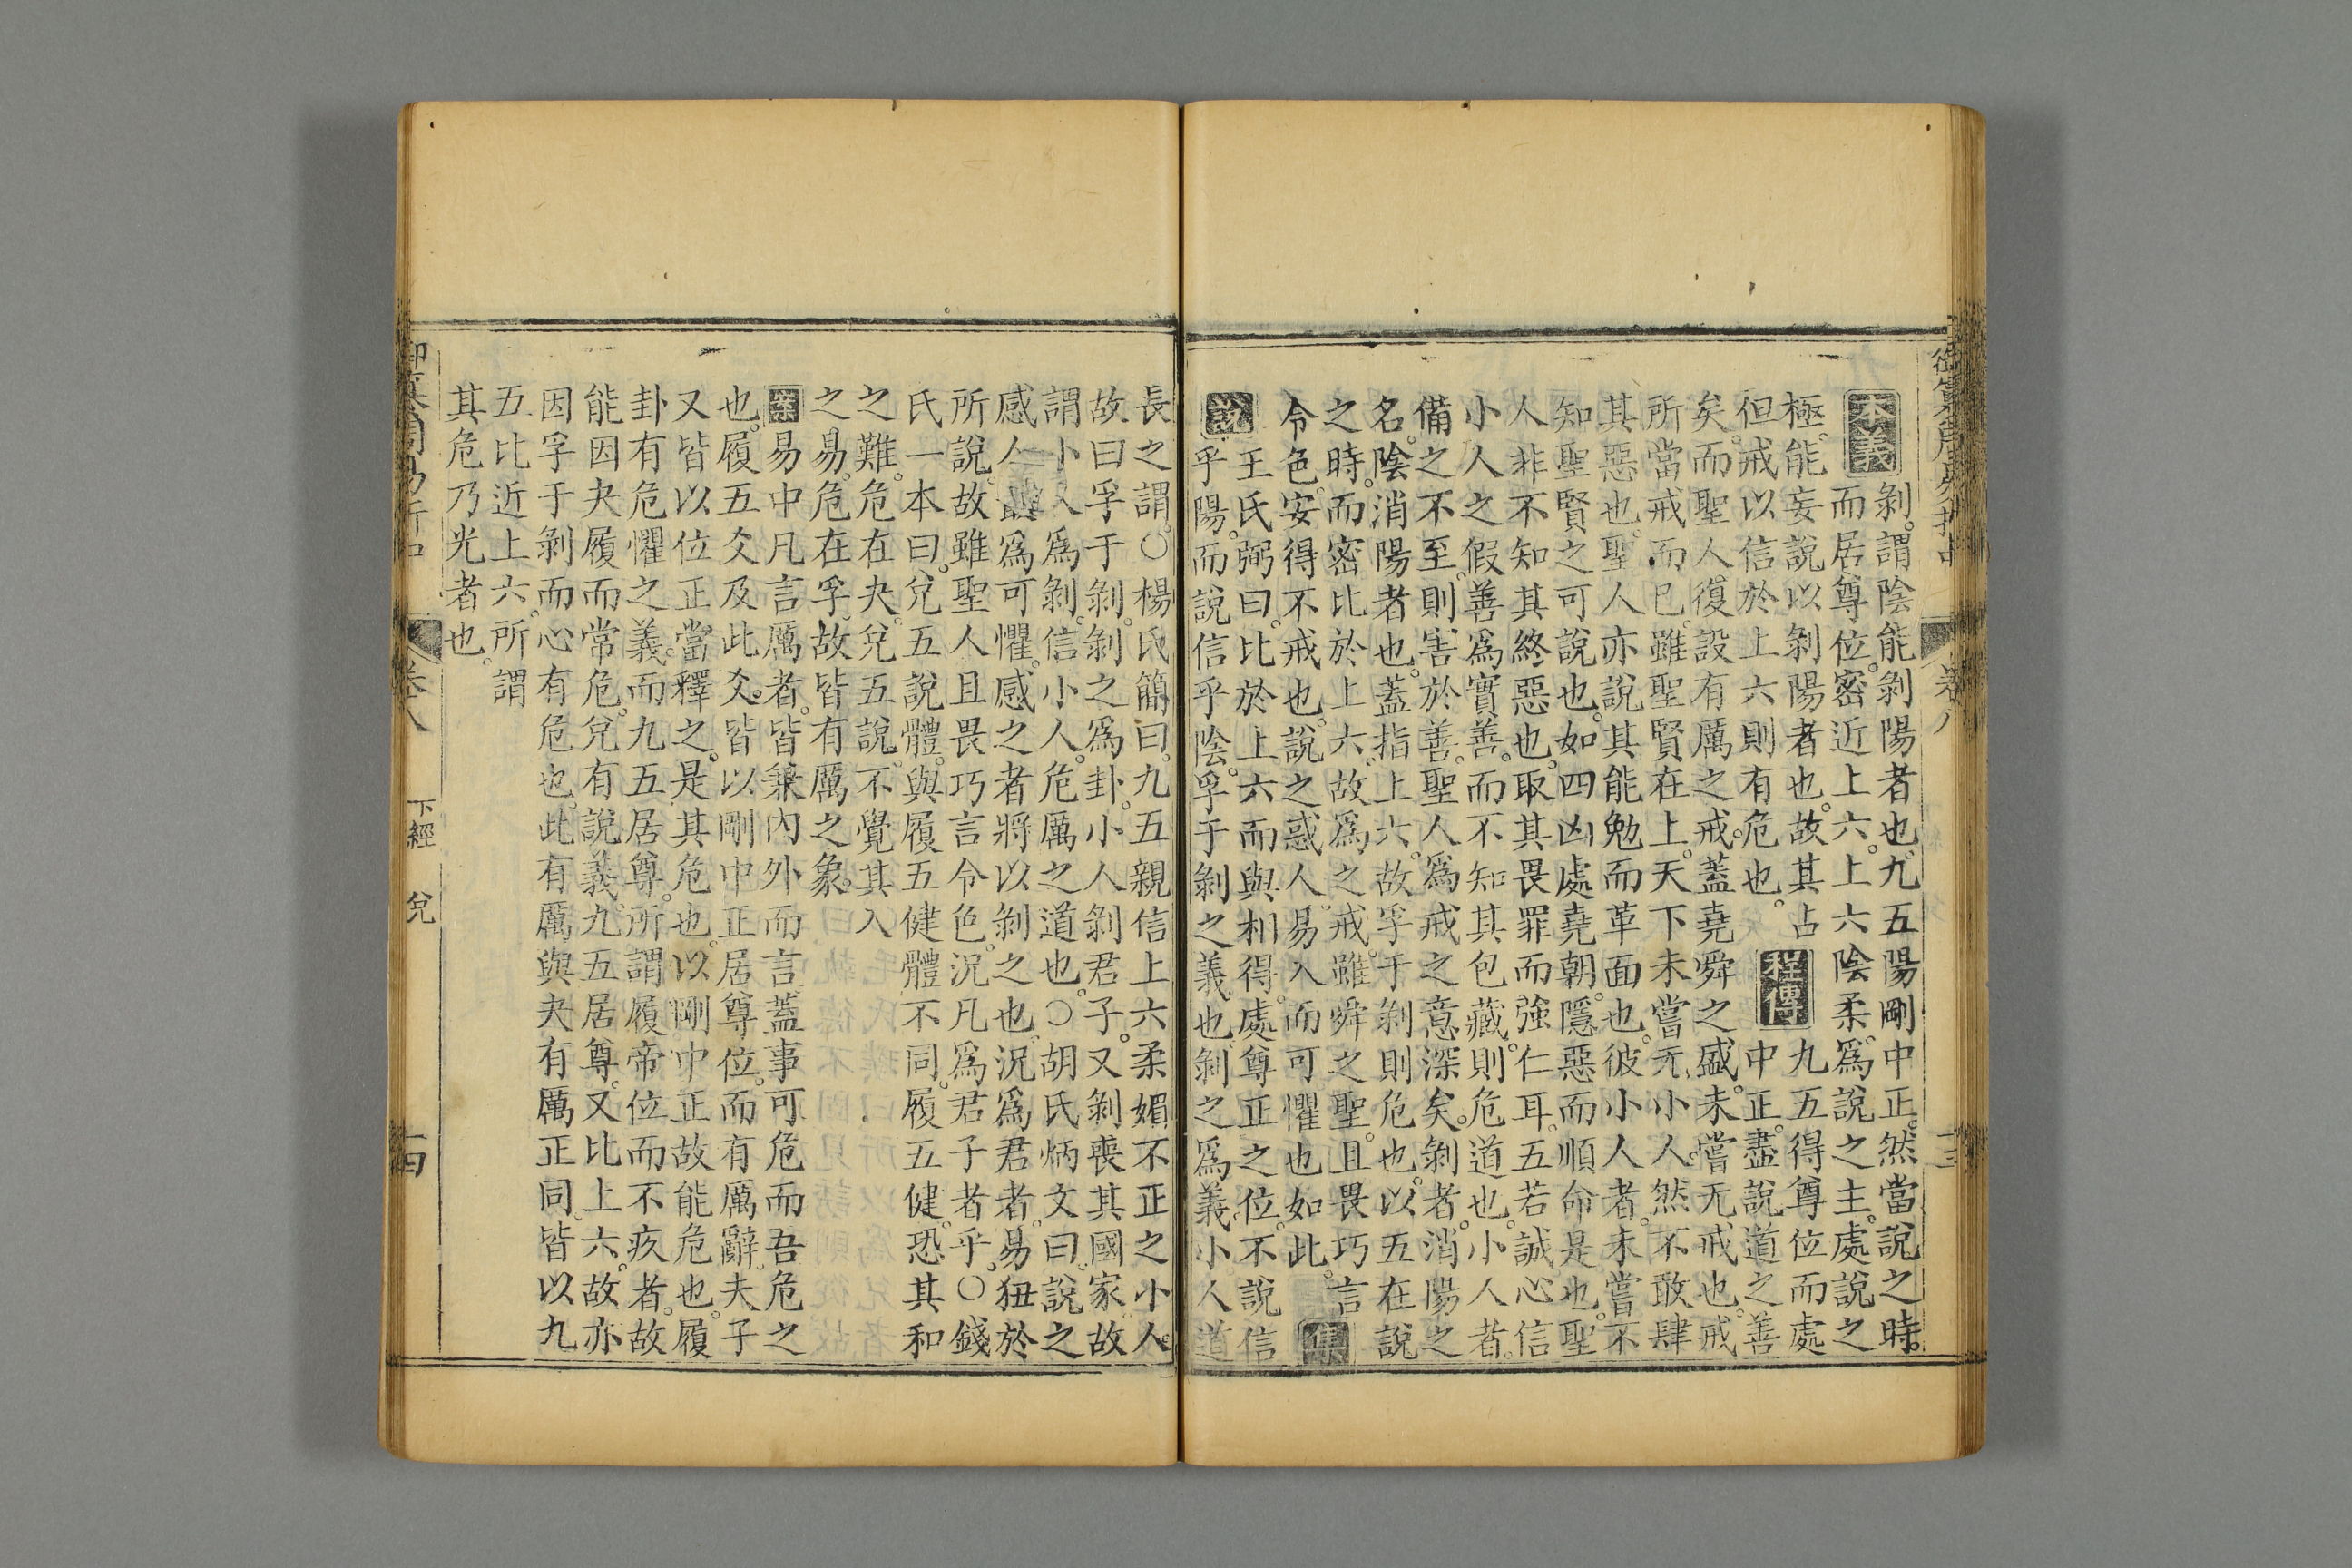 御纂周易折中 卷八 十三
本義 剝。謂陰能剝陽者也。九五陽剛中正。然當說之時。
而居尊位。密近上六。上六陰柔。爲說之主。處說之
極。能妄說以剝陽者也。故其占
但戒以信於上六則有危也。
程傳 九五得尊位而處
中正。盡說道之善
矣。而聖人復設有厲之戒。蓋堯舜之盛。未嘗无戒也。戒
所當戒而已。雖聖賢在上。天下未嘗无小人。然不敢肆
其惡也。聖人亦說其能勉而革面也。彼小人者。未嘗不
知聖賢之可說也。如四凶處堯朝。隱惡而順命是也。聖
人非不知其終惡也。取其畏罪而強仁耳。五若誠心信
小人之假善爲實善。而不知其包藏。則危道也。小人者。
備之不至。則害於善。聖人爲戒之意深矣。剝者。消陽之
名。陰消陽者也。蓋指上六。故孚于剝則危也。以五在說
之時。而密比於上六。故爲之戒。雖舜之聖。且畏巧言
令色。安得不戒也。說之惑人。易入而可懼也如此。 集
說 王氏弼曰。比於上六而與相得。處尊正之位。不說信
乎陽。而說信乎陰。孚于剝之義也。剝之爲義。小人道
長之謂。○楊氏簡曰。九五親信上六柔媚不正之小人。
故曰孚于剝。剝之爲卦。小人剝君子。又剝喪其國家。故
謂小人爲剝。信小人。危厲之道也。○胡氏炳文曰。說之
感人最爲可懼。感之者將以剝之也。況爲君者。易狃於
所說。故雖聖人且畏巧言令色。況凡爲君子者乎。○錢
氏一本曰。兌五說體。與履五健體不同。履五健。恐其和
之難。危在夬。兌五說。不覺其入
之易。危在孚。故皆有厲之象。
案 易中凡言厲者。皆兼內外而言。蓋事可危而吾危之
也。履五爻及此爻。皆以剛中正居尊位。而有厲辭。夫子
又皆以位正當釋之。是其危也。以剛中正故能危也。履
卦有危懼之義。而九五居尊。所謂履帝位而不疚者。故
能因夬履而常危。兌有說義。九五居尊。又比上六。故亦
因孚于剝而心有危也。此有厲與夬有厲正同。皆以九
五比近上六。所謂
其危乃光者也。
御纂周易折中 卷八 下經 兌 十四